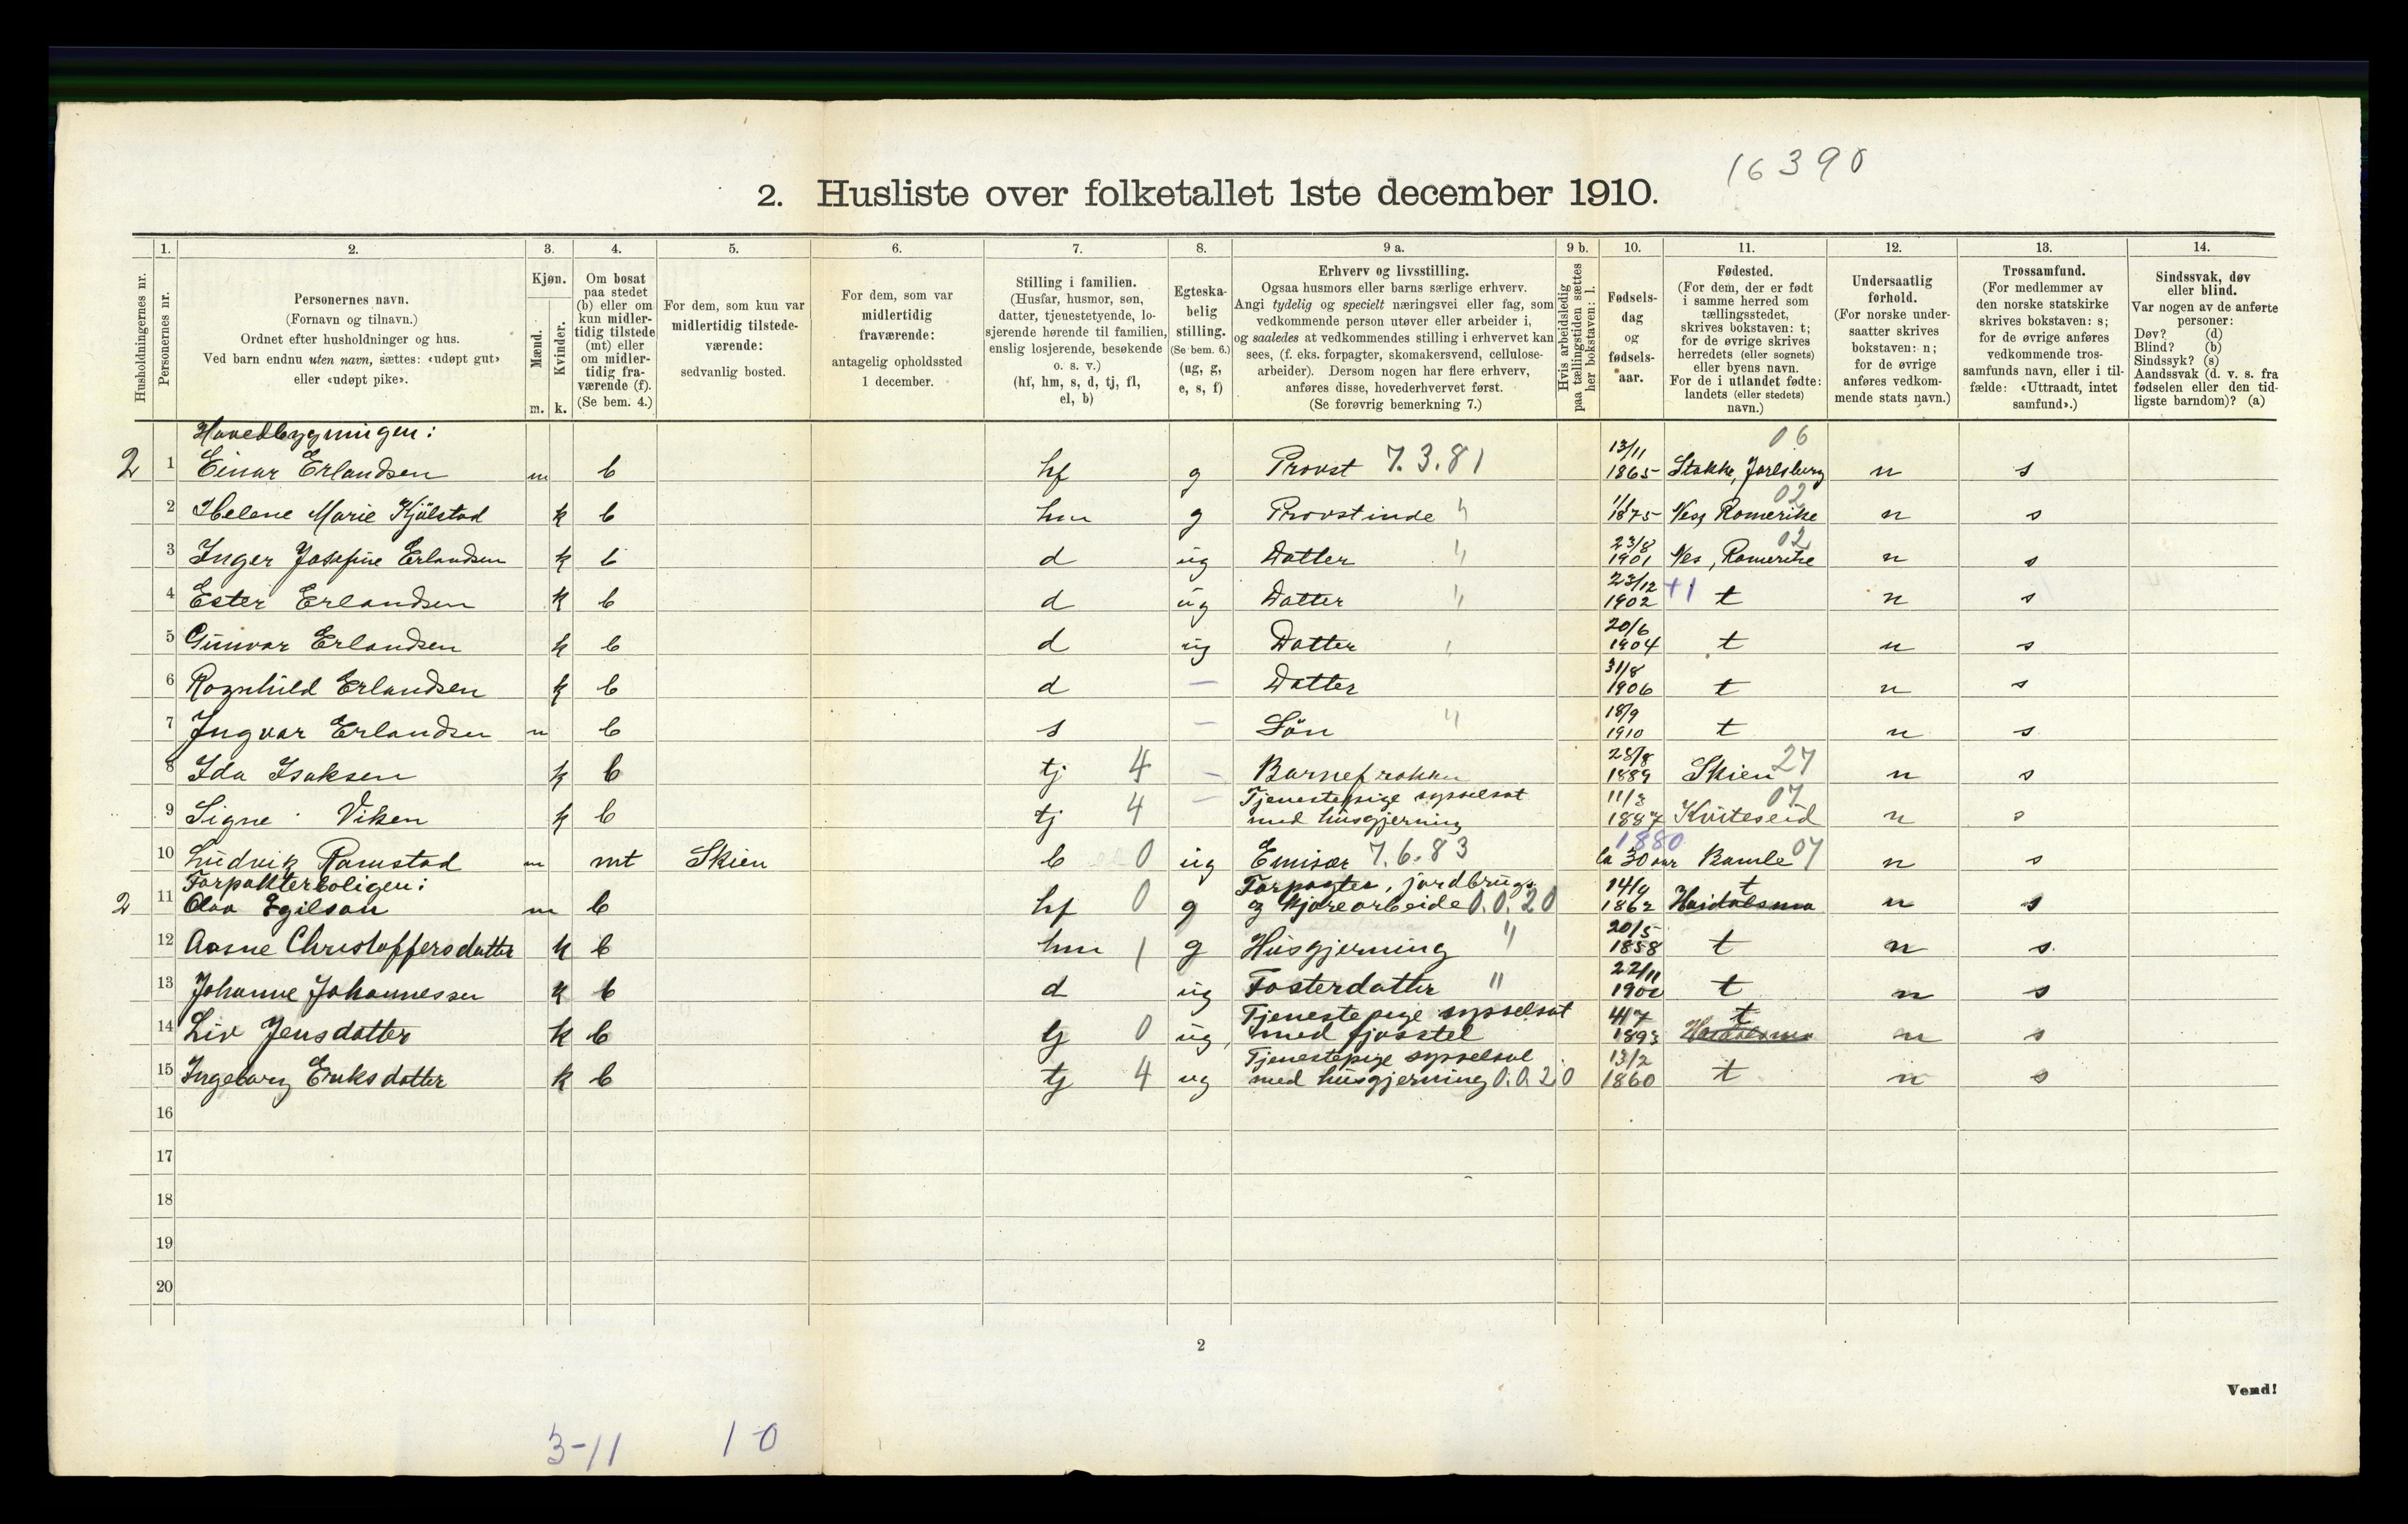 16390
2. Husliste over folketallet 1ste december 1910.
Husholdningernes nr.
1. Personernes nr.
2. Personernes navn.
(Fornavn og tilnavn.)
Ordnet efter husholdninger og hus.
Ved barn endnu uten navn, sættes: «udøpt gut»
eller «udøpt pike».
3. Kjøn.
Mænd. Kvinder.
m. k.
4. Om bosat
paa stedet
(b) eller om
kun midler-
tidig tilstede
(mt) eller
om midler-
tidig fra-
værende (f).
(Se bem. 4.)
5. For dem, som kun var
midlertidig tilstede-
værende:
sedvanlig bosted.
6. For dem, som var
midlertidig
fraværende:
antagelig opholdssted
1 december.
7. Stilling i familien.
(Husfar, husmor, søn,
datter, tjenestetyende, lo-
sjerende hørende til familien,
enslig losjerende, besøkende
o. s. v.)
(hf, hm, s, d, tj, fl,
el, b)
8. Egteska-
belig
stilling.
(Se bem. 6.)
(ug, g,
e, s, f)
9 a. Erhverv og livsstilling.
Ogsaa husmors eller barns særlige erhverv.
Angi tydelig og specielt næringsvei eller fag, som
vedkommende person utøver eller arbeider i,
og saaledes at vedkommendes stilling i erhvervet kan
sees, (f. eks. forpagter, skomakersvend, cellulose-
arbeider). Dersom nogen har flere erhverv,
anføres disse, hovederhvervet først.
(Se forøvrig bemerkning 7.)
9 b. Hvis arbeidsledig
paa tællingstiden sættes
her bokstaven: l.
10. Fødsels-
dag
og
fødsels-
aar.
11. Fødested.
(For dem, der er født
i samme herred som
tællingsstedet,
skrives bokstaven: t;
for de øvrige skrives
herredets (eller sognets)
eller byens navn.
For de i utlandet fødte:
landets (eller stedets)
navn.)
12. Undersaatlig
forhold.
(For norske under-
saatter skrives
bokstaven: n;
for de øvrige
anføres vedkom-
mende stats navn.)
13. Trossamfund.
(For medlemmer av
den norske statskirke
skrives bokstaven: s;
for de øvrige anføres
vedkommende tros-
samfunds navn, eller i til-
fælde: «Uttraadt, intet
samfund».)
14. Sindssvak, døv
eller blind.
Var nogen av de anførte
personer:
Døv? (d)
Blind? (b)
Sindssyk? (s)
Aandssvak (d. v. s. fra
fødselen eller den tid-
ligste barndom)? (a)
Hovedbygningen:
2 1 Einar Erlandsen m b hf g Provst 7.3.81 13/11 1865 Stokke, Jarlsberg 06 n s
2 Helene Marie Kjölstad k b hm g Provstinde " 1/1 1875 Nes, Romerike 02 n s
3 Inger Josefine Erlandsen k b d ug Datter " 23/8 1901 Nes, Romerike 02 n s
4 Ester Erlandsen k b d ug Datter " 23/12 1902 +1 t n s
5 Gunvor Erlandsen k b d ug Datter " 20/6 1904 t n s
6 Ragnhild Erlandsen k b d — Datter 31/8 1906 t n s
7 Ingvar Erlandsen m b s — Sön " 18/9 1910 t n s
8 Ida Isaksen k b tj 4 — Barnefrøken 23/8 1889 Skien 27 n s
9 Signe Viken k b tj 4 — Tjenestepige sysselsat
med husgjerning 11/3 1887 Kviteseid 07 n s
10 Ludvik Ramstad m mt Skien b 0 ug Emisær 7.6.83 1880 ca 30 aar Bamle 07 n s
Forpakterboligen:
2 11 Olav Egilson m b hf 0 g Forpagter, jordbrugs
og kjørearbeide 0.0.20 14/9 1862 t n s
12 Aasne Christoffersdatter k b hm 1 g Husgjerning " 20/5 1858 t n s
13 Johanne Johannessen k b d ug Fosterdatter " 22/11 1900 t n s
14 Liv Jensdatter k b tj 0 ug Tjenestepige sysselsat
med fjosstel 4/7 1893 t n s
15 Ingeborg Eriksdatter k b tj 4 ug Tjenestepige sysselsat
med husgjerning 0.0.20 13/2 1860 t n s
16
17
18
19
20
2
Vend!
3-11 10